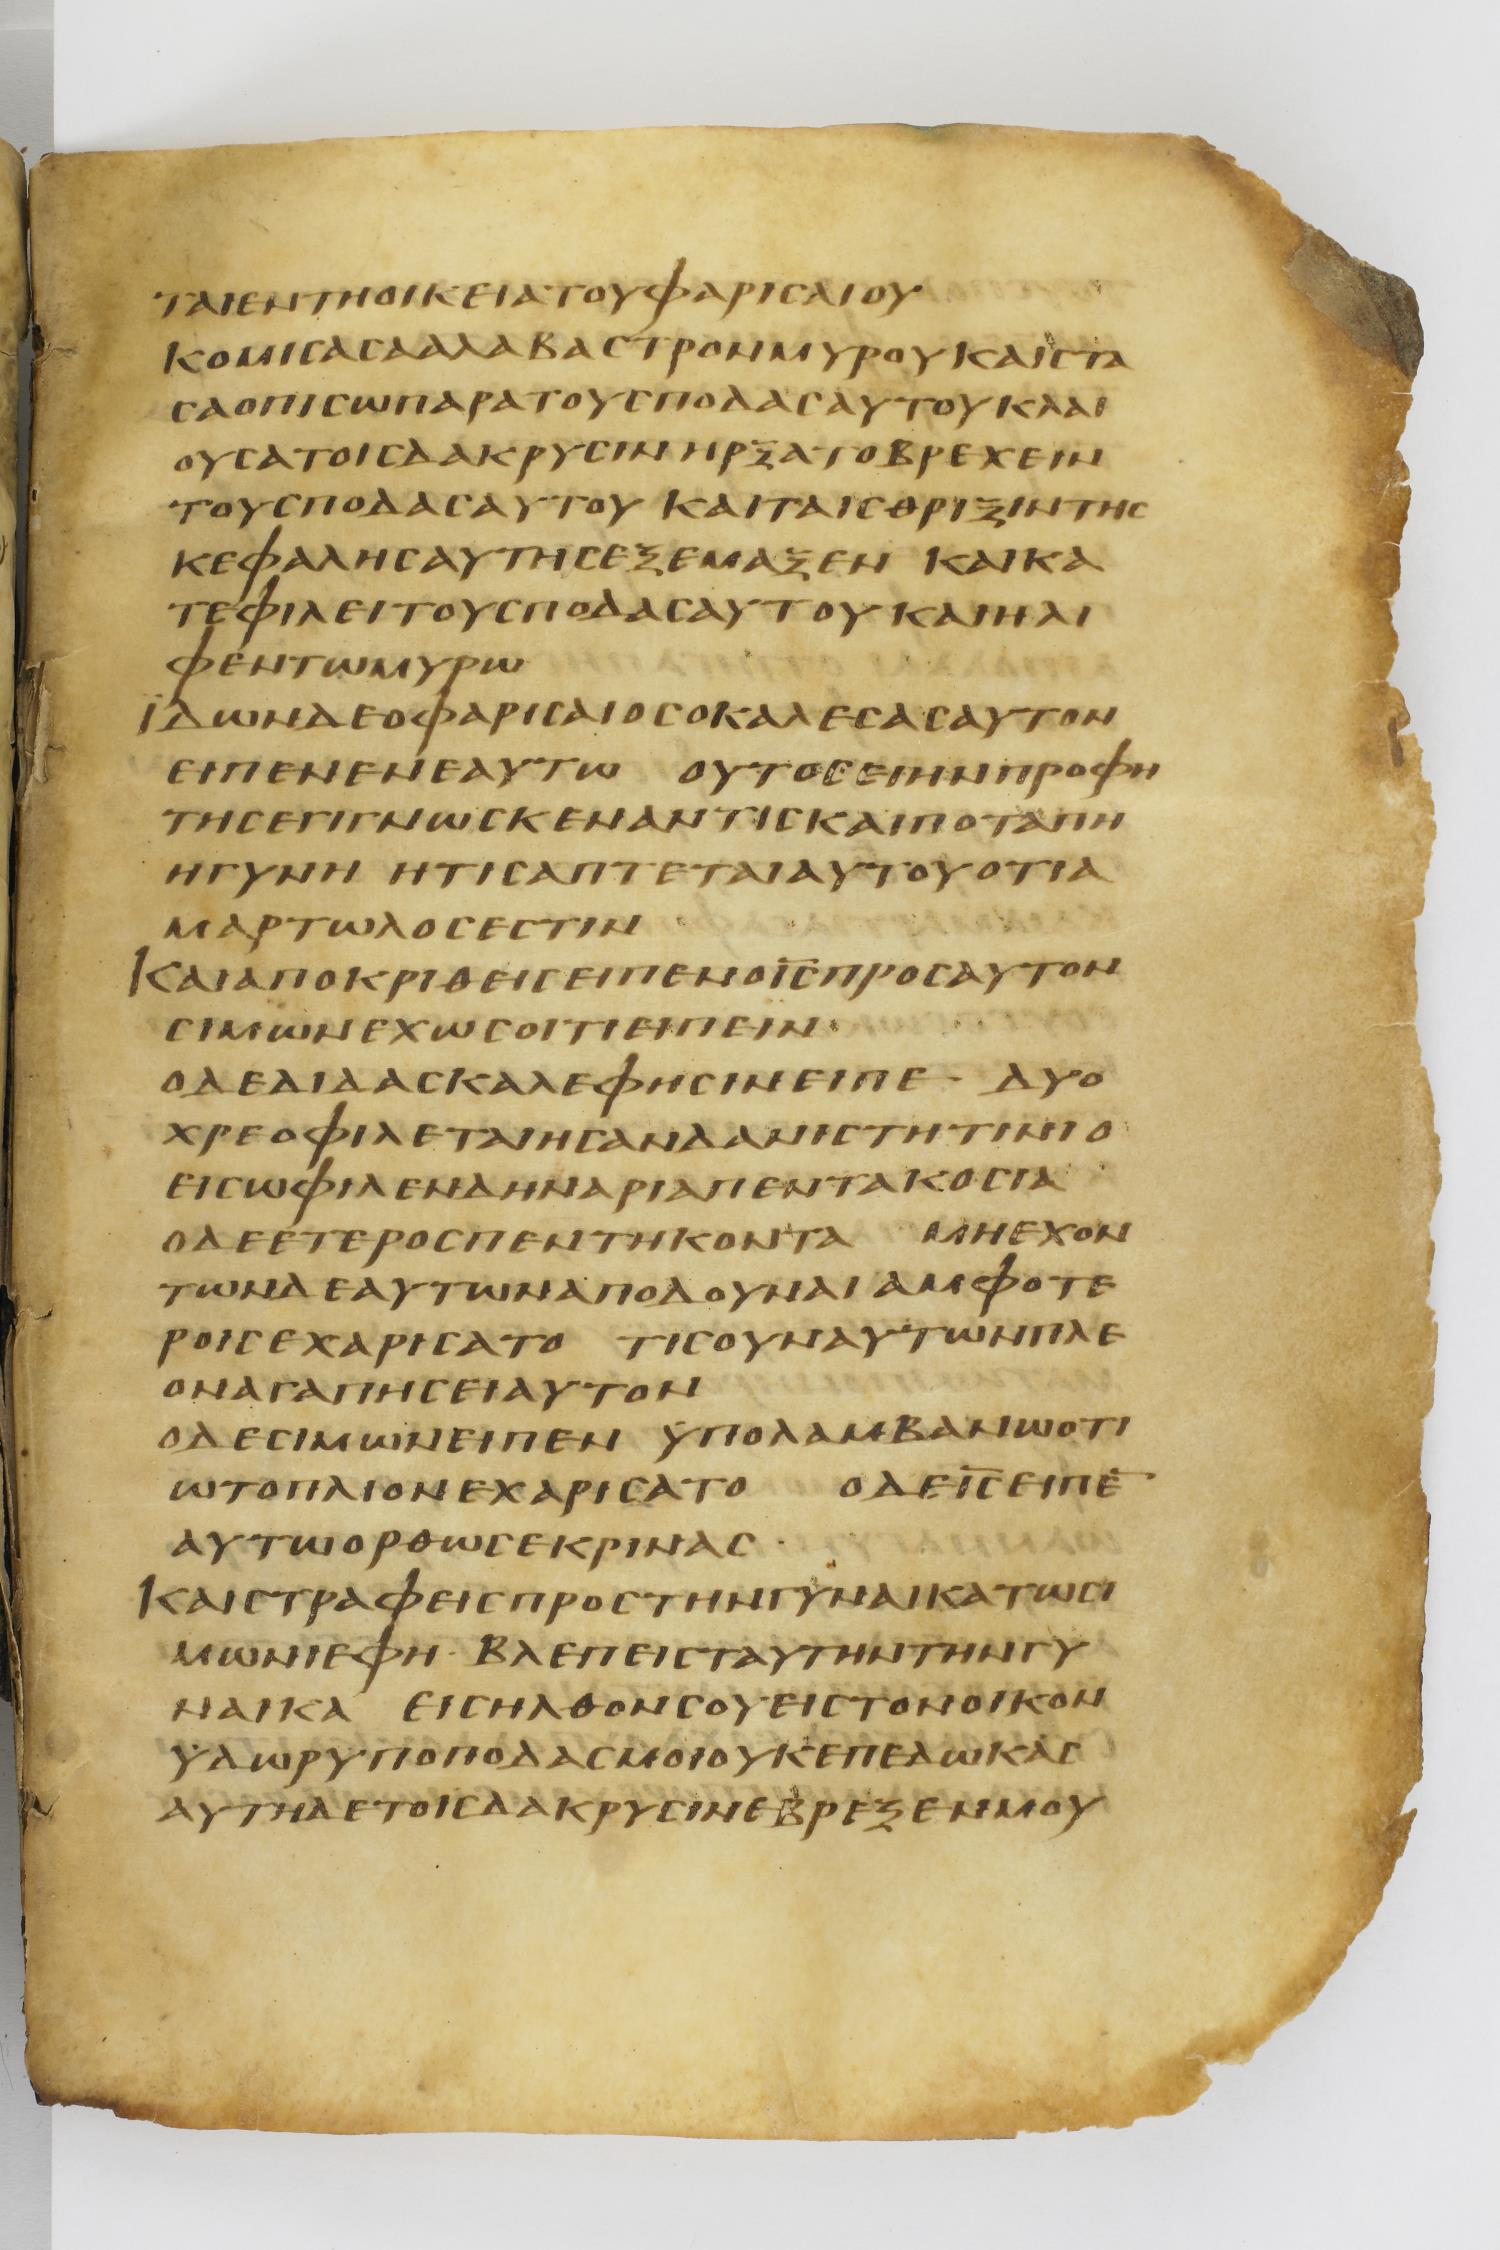 ταιεντηοικειατουφαρισαιου
κομισασααλαβαστρονμυρουκαιστα
σαοπισωπαρατουσποδασαυτουκλαι
ουσατοισδακρυσινηρξατοβρεχειν
τουσποδασαυτου καιταισθριξιντης
κεφαλησαυτησεξεμαξεν καικα
τεφιλειτουσποδασαυτουκαιηλι
φεντωμυρω
ϊδωνδεοφαρισαιοσοκαλεσασαυτον
ειπενενεαυτω ουτοσειηνπροφη
τησεγιγνωσκεναντισκαιποταπη
ηγυνη ητισαπτεταιαυτουοτια
μαρτωλοσεστιν
καιαποκριθεισειπενοι̅ς̅προσαυτον
σιμωνεχωσοιτιειπειν
οδεδιδασκαλεφησινειπε δυο
χρεοφιλεταιησανδανιστητινιο
εισωφιλενδηναριαπεντακοσια
οδεετεροσπεντηκοντα μηεχον
τωνδεαυτωναποδουναιαμφοτε
ροισεχαρισατο τισουναυτωνπλε
οναγαπησειαυτον
οδεσιμωνειπεν ϋπολαμβανωοτι
ωτοπλιονεχαρισατο οδει̅ς̅ειπε̅
αυτωορθωσεκρινας·
καιστραφεισπροστηνγυναικατωσι
μωνιεφη· βλεπεισταυτηντηνγυ
ναικα εισηλθονσουειστονοικον
ϋδωρυποποδασμοιουκεπεδωκας
αυτηδετοισδακρυσινεβρεξενμου